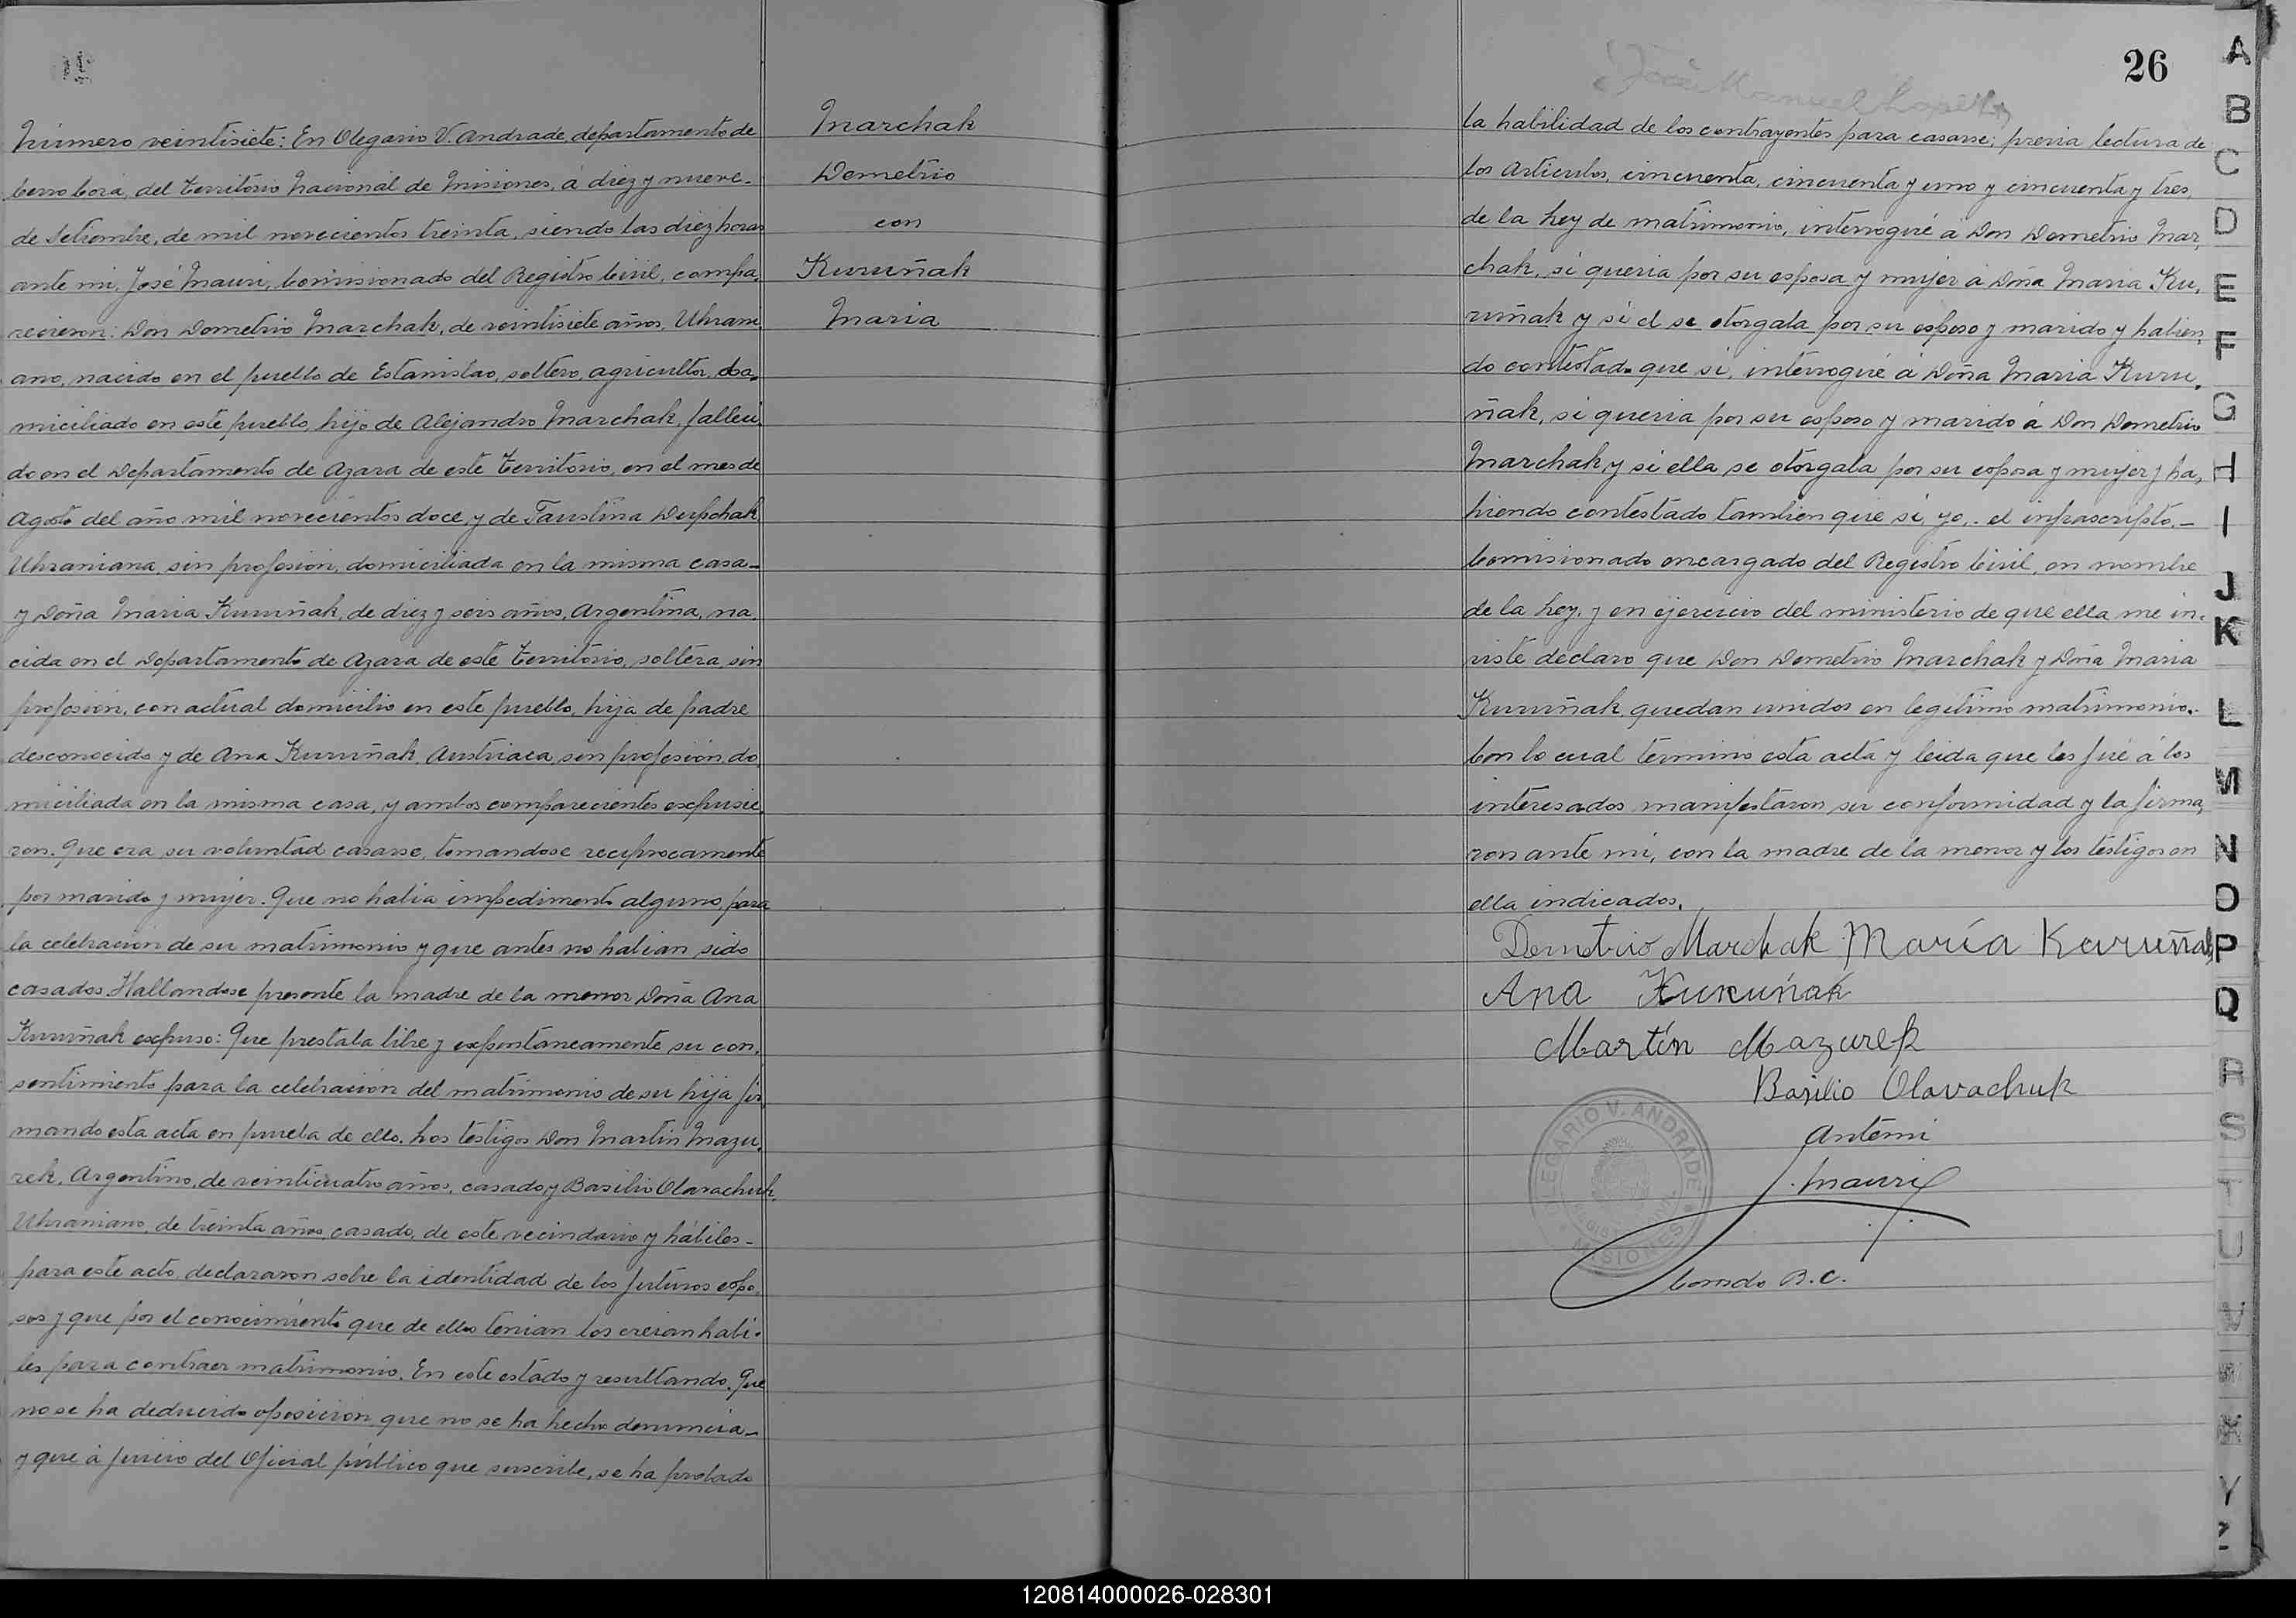 Número veintisiete: En Olegario V. Andrade, departamento de
Cerro Corá, del Territorio Nacional de Misiones, á diez y nueve-
de Setiembre, de mil novecientos treinta, siendo las diez horas
ante mi, José Mauri, Comisionado del Registro Civil, compa,
recieron: Don Demetrio Marchak, de veintisiete años, Ukrani
ano, nacido en el pueblo de Estanislao, soltero, agricultor, do,
miciliado en este pueblo, hijo de Alejandro Marchak, falleci,
do en el Departamento de Azara de este Territorio, en el mes de
Agosto del año mil novecientos doce, y de Faustina Derpchak
Ukraniana, sin profesión, domiciliada en la misma casa-
y Doña Maria Kuruñak, de diez y seis años, Argentina, na,
cida en el Departamento de Azara de este Territorio, soltera, sin
profesión, con actual domicilio en este pueblo, hija de padre
desconocido y de Ana Kuruñak, Austriaca, sin profesión, do,
miciliada en la misma casa, y ambos comparecientes expusie,
ron. Que era su voluntad casarse, tomandose reciprocamente
por marido y mujer. Que no habia impedimento alguno, para
la celebracion de su matrimonio y que antes no habian sido
casados. Hallandose presente la madre de la menor Doña Ana
Kuruñak expuso: Que prestaba libre y espontaneamente su con,
sentimiento para la celebración del matrimonio de su hija fir,
mando esta acta en prueba de ello. Los testigos Don Martin Mazu,
rek, Argentino, de veinticuatro años, casado, y Basilio Olavachuk,
Ukraniano, de treinta años, casado, de este vecindario y hábiles-
para este acto, declararon sobre la identidad de los futuros espo,
sos y que por el conocimiento que de ellos tenian los creian habi-
les para contraer matrimonio. En este estado y resultando. Que
no se ha deducido oposición, que no se ha hecho denuncia-
y que á juicio del Oficial público que suscribe, se ha probado
Marchak
Demetrio
con
Kuruñak
Maria
José Manuel Lopez
26
la habilidad de los contrayentes para casarse; previa lectura de
los Articulos, cincuenta, cincuenta y uno y cincuenta y tres,
de la Ley de matrimonio, interrogué á Don Demetrio Mar,
chak, si queria por su esposa y mujer á Doña Maria Ku,
ruñak y si el se otorgaba por su esposo y marido y habien,
do contestado que si, interrogué á Doña Maria Kuru,
ñak, si queria por su esposo y marido á Don Demetrio
Marchak y si ella se otorgaba por su esposa y mujer y ha,
biendo contestado tambien que si, yo, el infrascripto,-
Comisionado encargado del Registro Civil, en nombre
de la Ley, y en ejercicio del ministerio de que ella me in-
viste declaro que Don Demetrio Marchak y Doña Maria
Kuruñak, quedan unidos en legitimo matrimonio.
Con lo cual terminó esta acta y leida que les fué á los
interesados manifestaron su conformidad y la firma,
ron ante mi, con la madre de la menor y los testigos en
ella indicados.
Demetrio Marchak María Kuruñak
Ana Kuruńak
Martín Mazurek
Basilio Olavachuk
Ante mi
J. Mauri
Comdo R.C.
OLEGARIO V. ANDRADE
REGISTRO CIVIL
MISIONES
A
B
C
D
E
F
G
H
I
J
K
L
M
N
O
P
Q
R
S
T
U
V
W
X
Y
Z
120814000026-028301